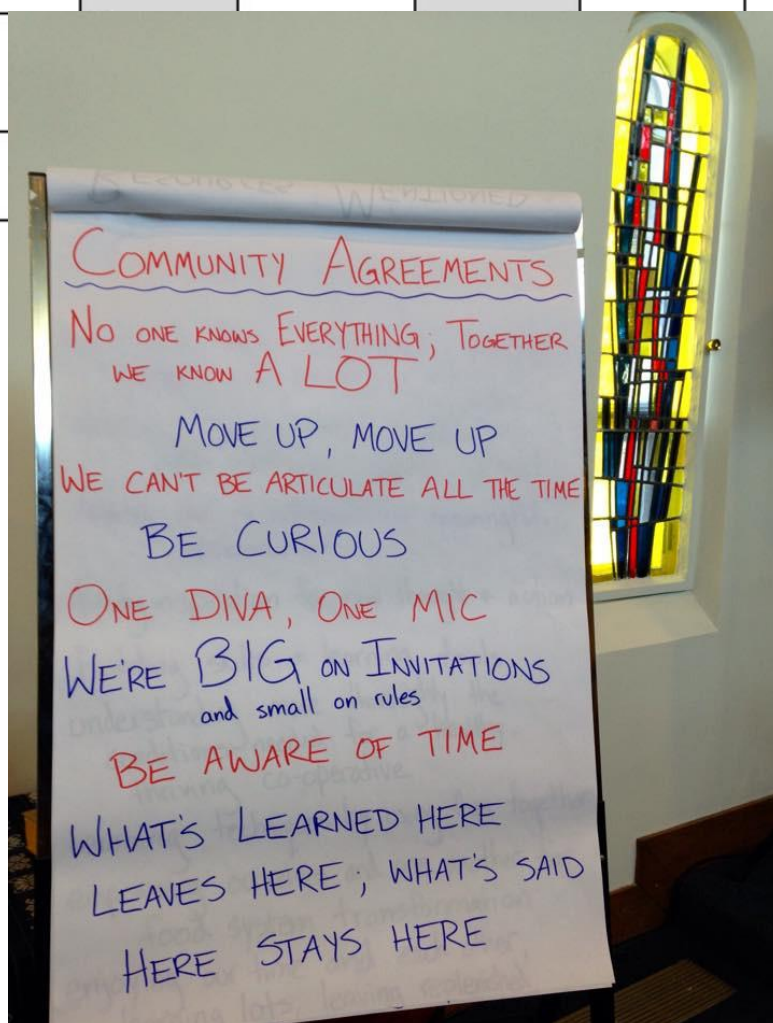 RESOURCES MENTIONED
COMMUNITY AGREEMENTS
NO ONE KNOWS EVERYTHING; TOGETHER
WE KNOW A LOT
MOVE UP, MOVE UP
WE CAN'T BE ARTICULATE ALL THE TIME
BE CURIOUS
ONE DIVA, ONE MIC
WE'RE BIG ON INVITATIONS
and small on rules
BE AWARE OF TIME
WHAT'S LEARNED HERE
LEAVES HERE; WHAT'S SAID
HERE STAYS HERE